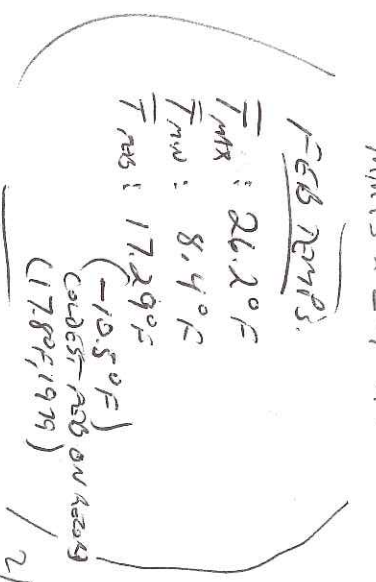 FEB TEMPS:
T̅ MAX : 26.2°F
T̅ MIN : 8.4°F
T̅ FEB : 17.29°F
(-10.5°F)
COLDEST FEB ON RECORD
(17.8°F, 1979)